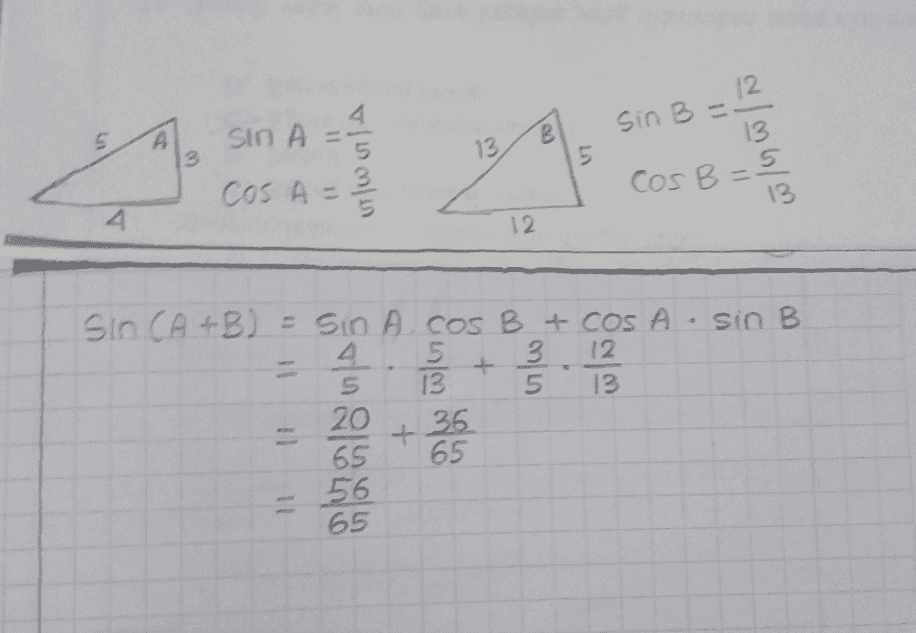 5 A 3 4
sin A = 4/5
cos A = 3/5
13 B 5 12
sin B = 12/13
cos B = 5/13
sin (A+B) = sin A cos B + cos A . sin B
= 4/5 . 5/13 + 3/5 . 12/13
= 20/65 + 36/65
= 56/65